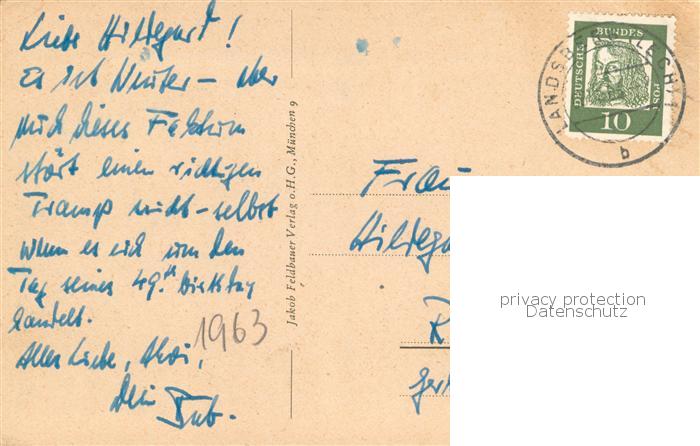 Liebe Hildegard!
Es ist Winter – aber
auch dieses Faktum
stört einen richtigen
Tramp nicht – selbst
wenn es sich um den
Tag seines 49. ten Birthday
handelt.
Alles Liebe, Ahoi,
Dein
1963
Jakob Feldbauer Verlag o.H.G., München 9
LANDSB LECH 1
b
DEUTSCHE BUNDES POST
10
Frau
Hildeg
R
privacy protection
Datenschutz